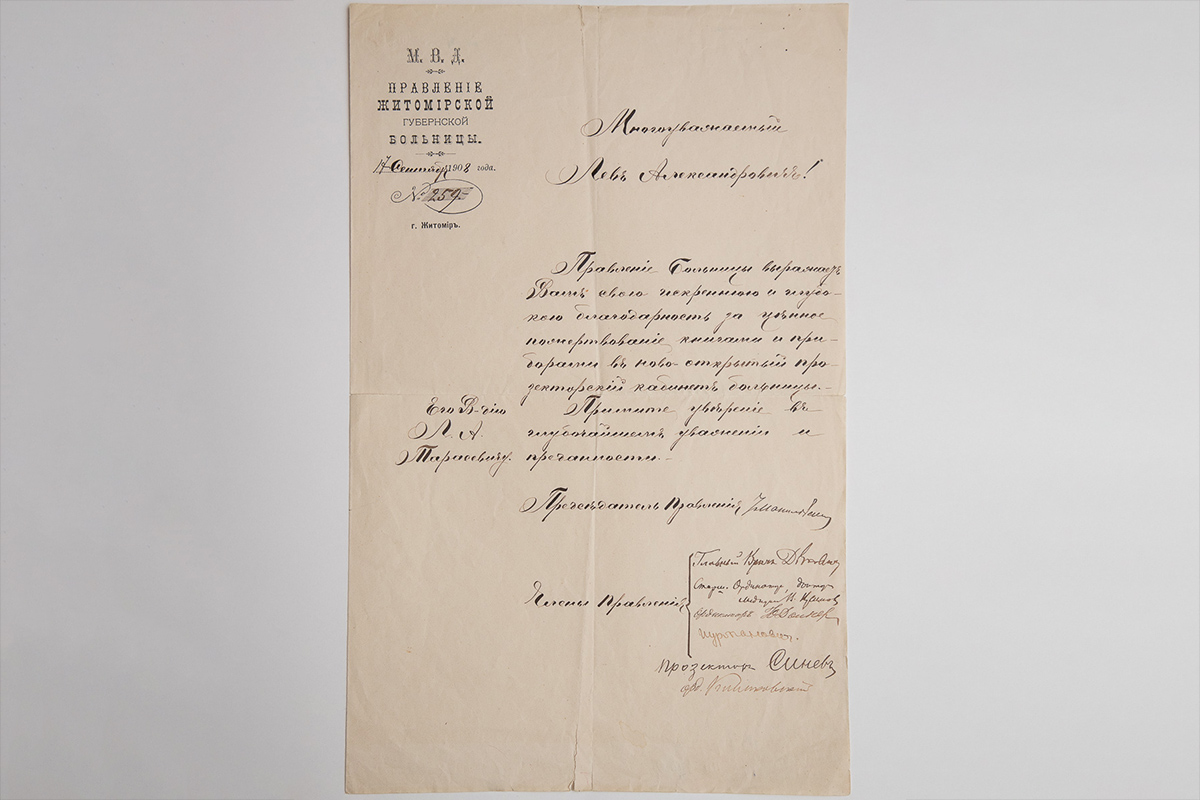 М. В. Д.
ПРАВЛЕНІЕ
ЖИТОМІРСКОЙ
ГУБЕРНСКОЙ
БОЛЬНИЦЫ.
17 Сентября 1908 года.
№ 259.
г. Житоміръ.
Многоуважаемый
Левъ Александровичъ!
Правленіе Больницы выражаетъ
Вамъ свою искреннюю и глубо-
кую благодарность за цѣнное
пожертвованіе книгами и при-
борами въ ново-открытый про-
зекторскій кабинетъ больницы.-
Его В-дію
Л. А.
Тарасевичу.
Примите увѣреніе въ
глубочайшемъ уваженіи и
преданности.-
Предсѣдатель Правленія
Члены Правленія
Главный Врачъ
Старш. Ординаторъ, Докторъ
медицины
Ординаторъ
Прозекторъ Синевъ
орд.